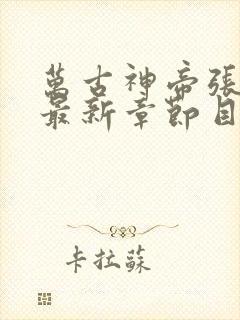 萬古神帝張
最新章節目
卡拉蘇